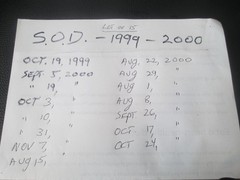 S.O.D. - 1999 - 2000
OCT. 19, 1999
SEPT. 5, 2000
" 19, "
OCT 3, "
" 10, "
" 31, "
NOV 7, "
AUG 15, "
AUG. 22, 2000
AUG 29, "
AUG 1, "
AUG 8, "
SEPT 26, "
OCT 17, "
OCT 24, "